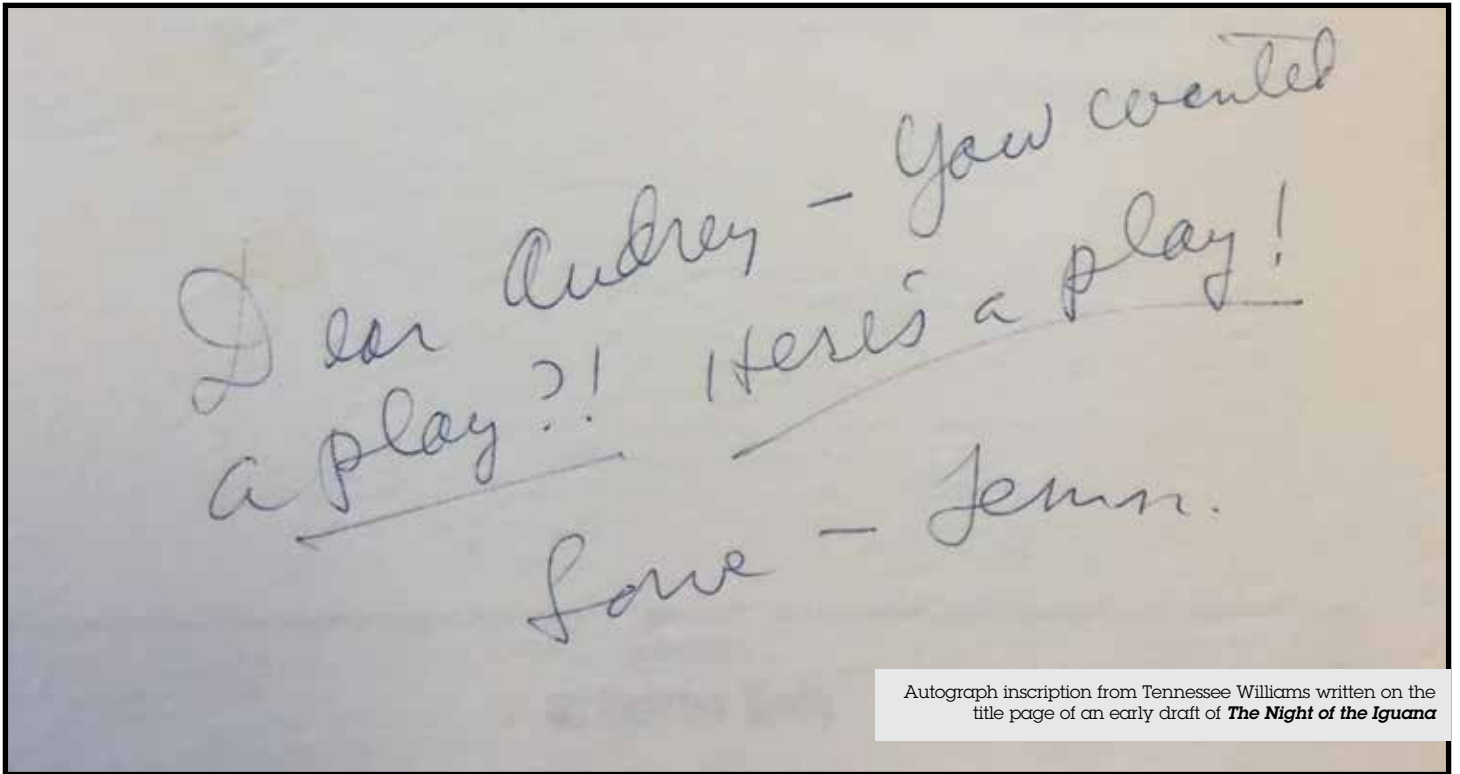 Dear Audrey – You wanted
a play?! Here's a play!
Love – Tenn.
Autograph inscription from Tennessee Williams written on the
title page of an early draft of The Night of the Iguana